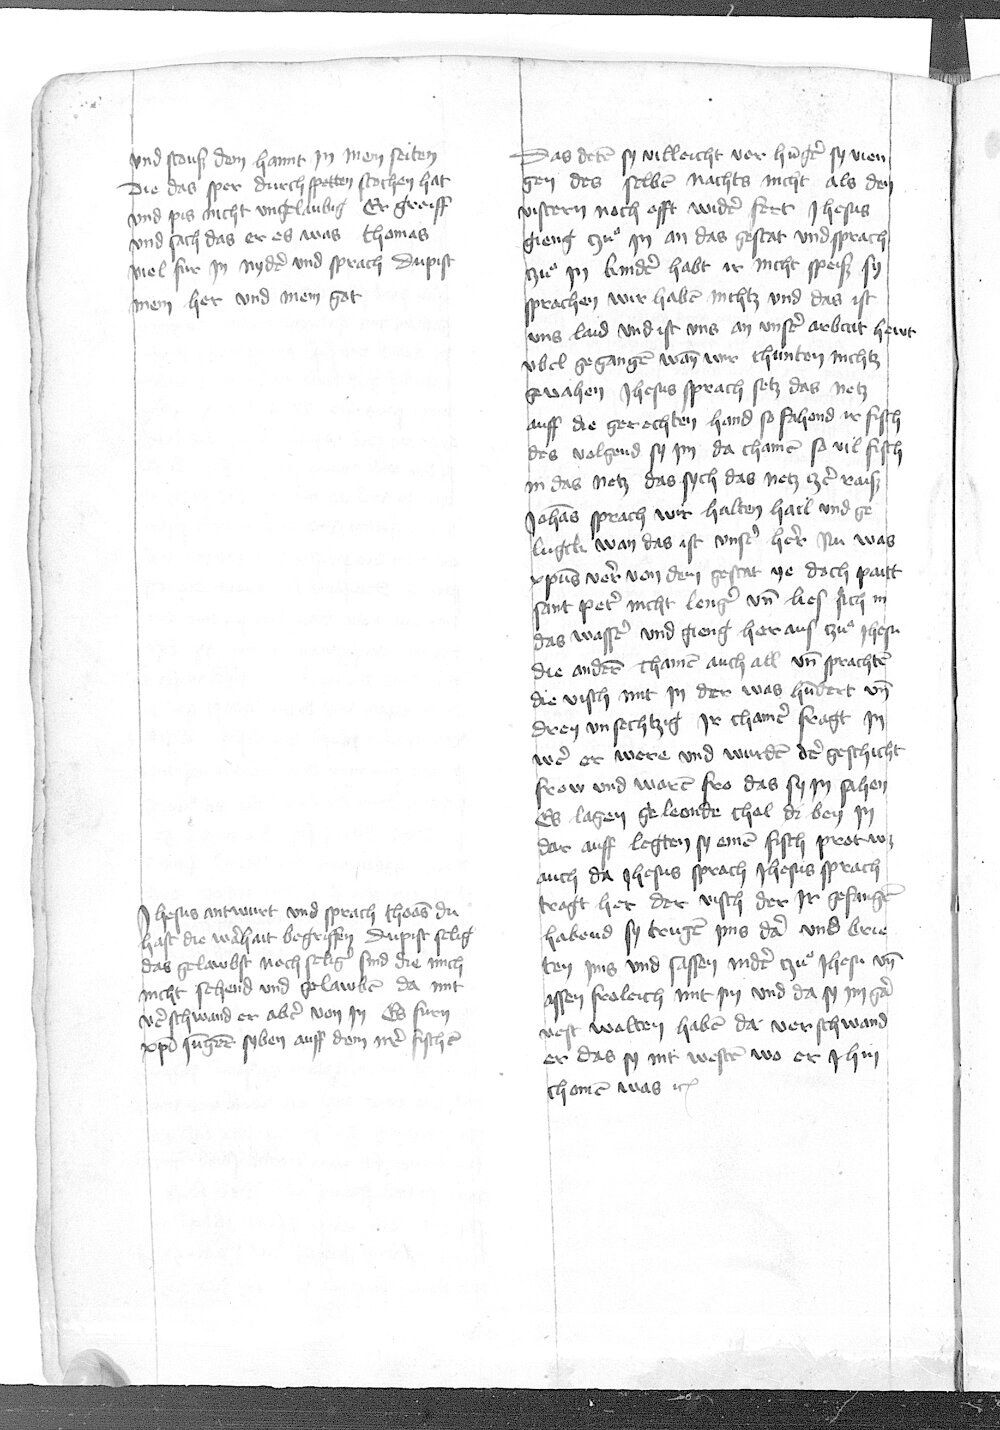 und stouß dein hannt In mein seiten
Die das sper durch spetten stochen hat
und pis nicht ungelaubig Er greiff
und sach das er es was thomas
viel fur In nyder̄ und sprach Du pist
mein her und mein got
Jhesus antwurt und sprach thōas du
hast die warhait begriffen Du pist selig
das gelawbst noch seliḡ sind die mich
nicht sehend und gelawbē da mit
v̄schwand er abē von In Es furn
xp̄i Jungerē syben auff dem m̄er fischē
Das detē sy villeicht vor hūgē sy vien
gen des selbē nachts nicht als den
vistern noch offt widē fert Jhesus
gieng czu In an das gestat und sprach
czu In kindē habt ir nicht speiß sy
sprachen wir habē nichtz und das ist
uns laid und ist uns an unsē arbait hewt
ubel gegangē wan̄ wir chunten nichtz
gevahen Jhesus sprach setz das netz
auff die gerechten hand so fahend ir fisch
des volgend sy im da chamē so vil fisch
in das netz das sych das netz czē raiß
Johās sprach wir halten hail und ge
lugkh wan das ist unsē hēr Nu was
xpūs vēr von dem gestat ye doch pait
sant petē nicht lengē un̄ lies sich in
das wassē und gieng her aus czu Jhesu
die anderē chamē auch all un̄ prachtē
die visch mit In der was hūdert un̄
drey un sechtzig Ir chainē fragt In
wē er were und wurdē dē geschicht
frow und warē fro das sy In sahen
Es lagen geleonde chol da bey In
dar auff legten sy einē fisch prot wz
auch da Jhesus sprach Jhesus sprach
tragt her der visch der Ir gefangē
habend sy trugē Ims dar und brie
ten Ims und sassen nidē czu Jhesu un̄
assen froleich mit Im und da sy im gar
vest walten habē da verschwand
er das sy nit westē wo er Ihin
chomē was